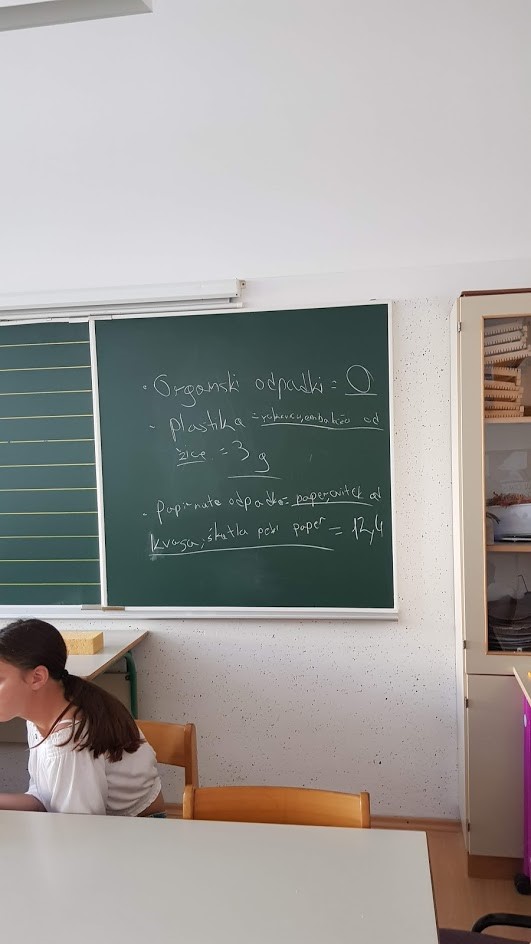 • Organski odpadki = 0
- Plastika = rokavice, embalaža od
žice = 3 g
- Papirnate odpadke = paper, ovitek od
kvasa, škatla peki paper = 12,4